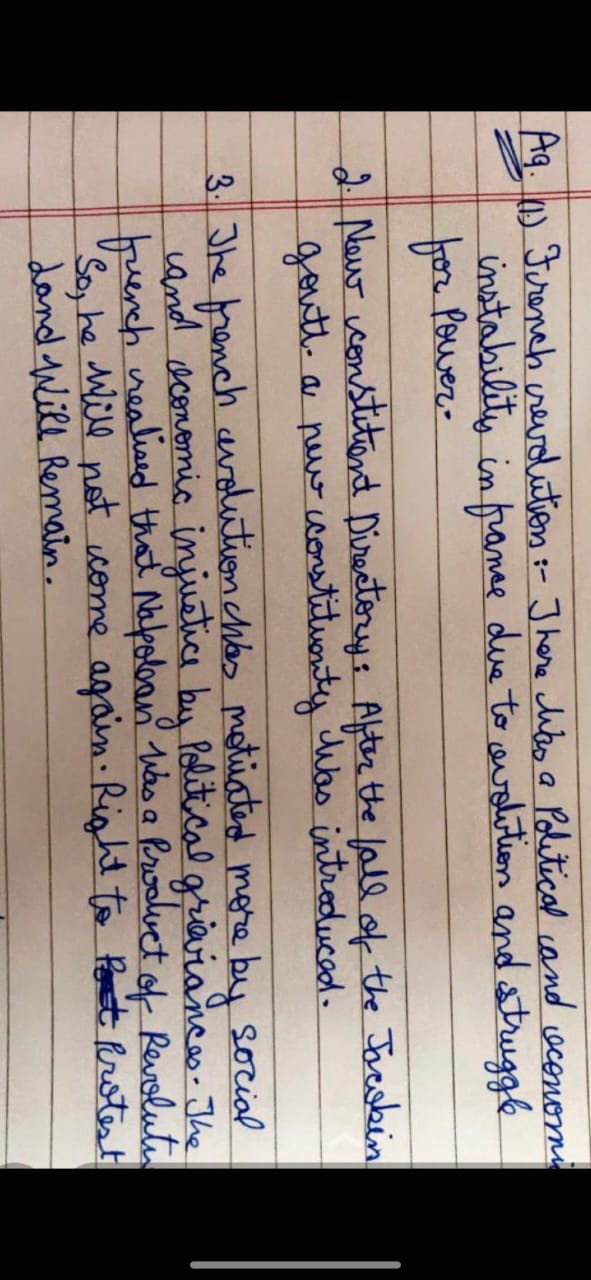 A9. (1.) French revolution :- There was a Political and economi
instability in france due to evolution and struggle
for Power.
2. New constitient Directory: After the fall of the Jacobin
govtt. a new constituenty was introduced.
3. The french evolution was motiiated more by social
and economic injustice by Political grieviances. The
french realised that Napoloan was a Product of Revolutu
So, he will not come again. Right to Protest
Land will Remain.